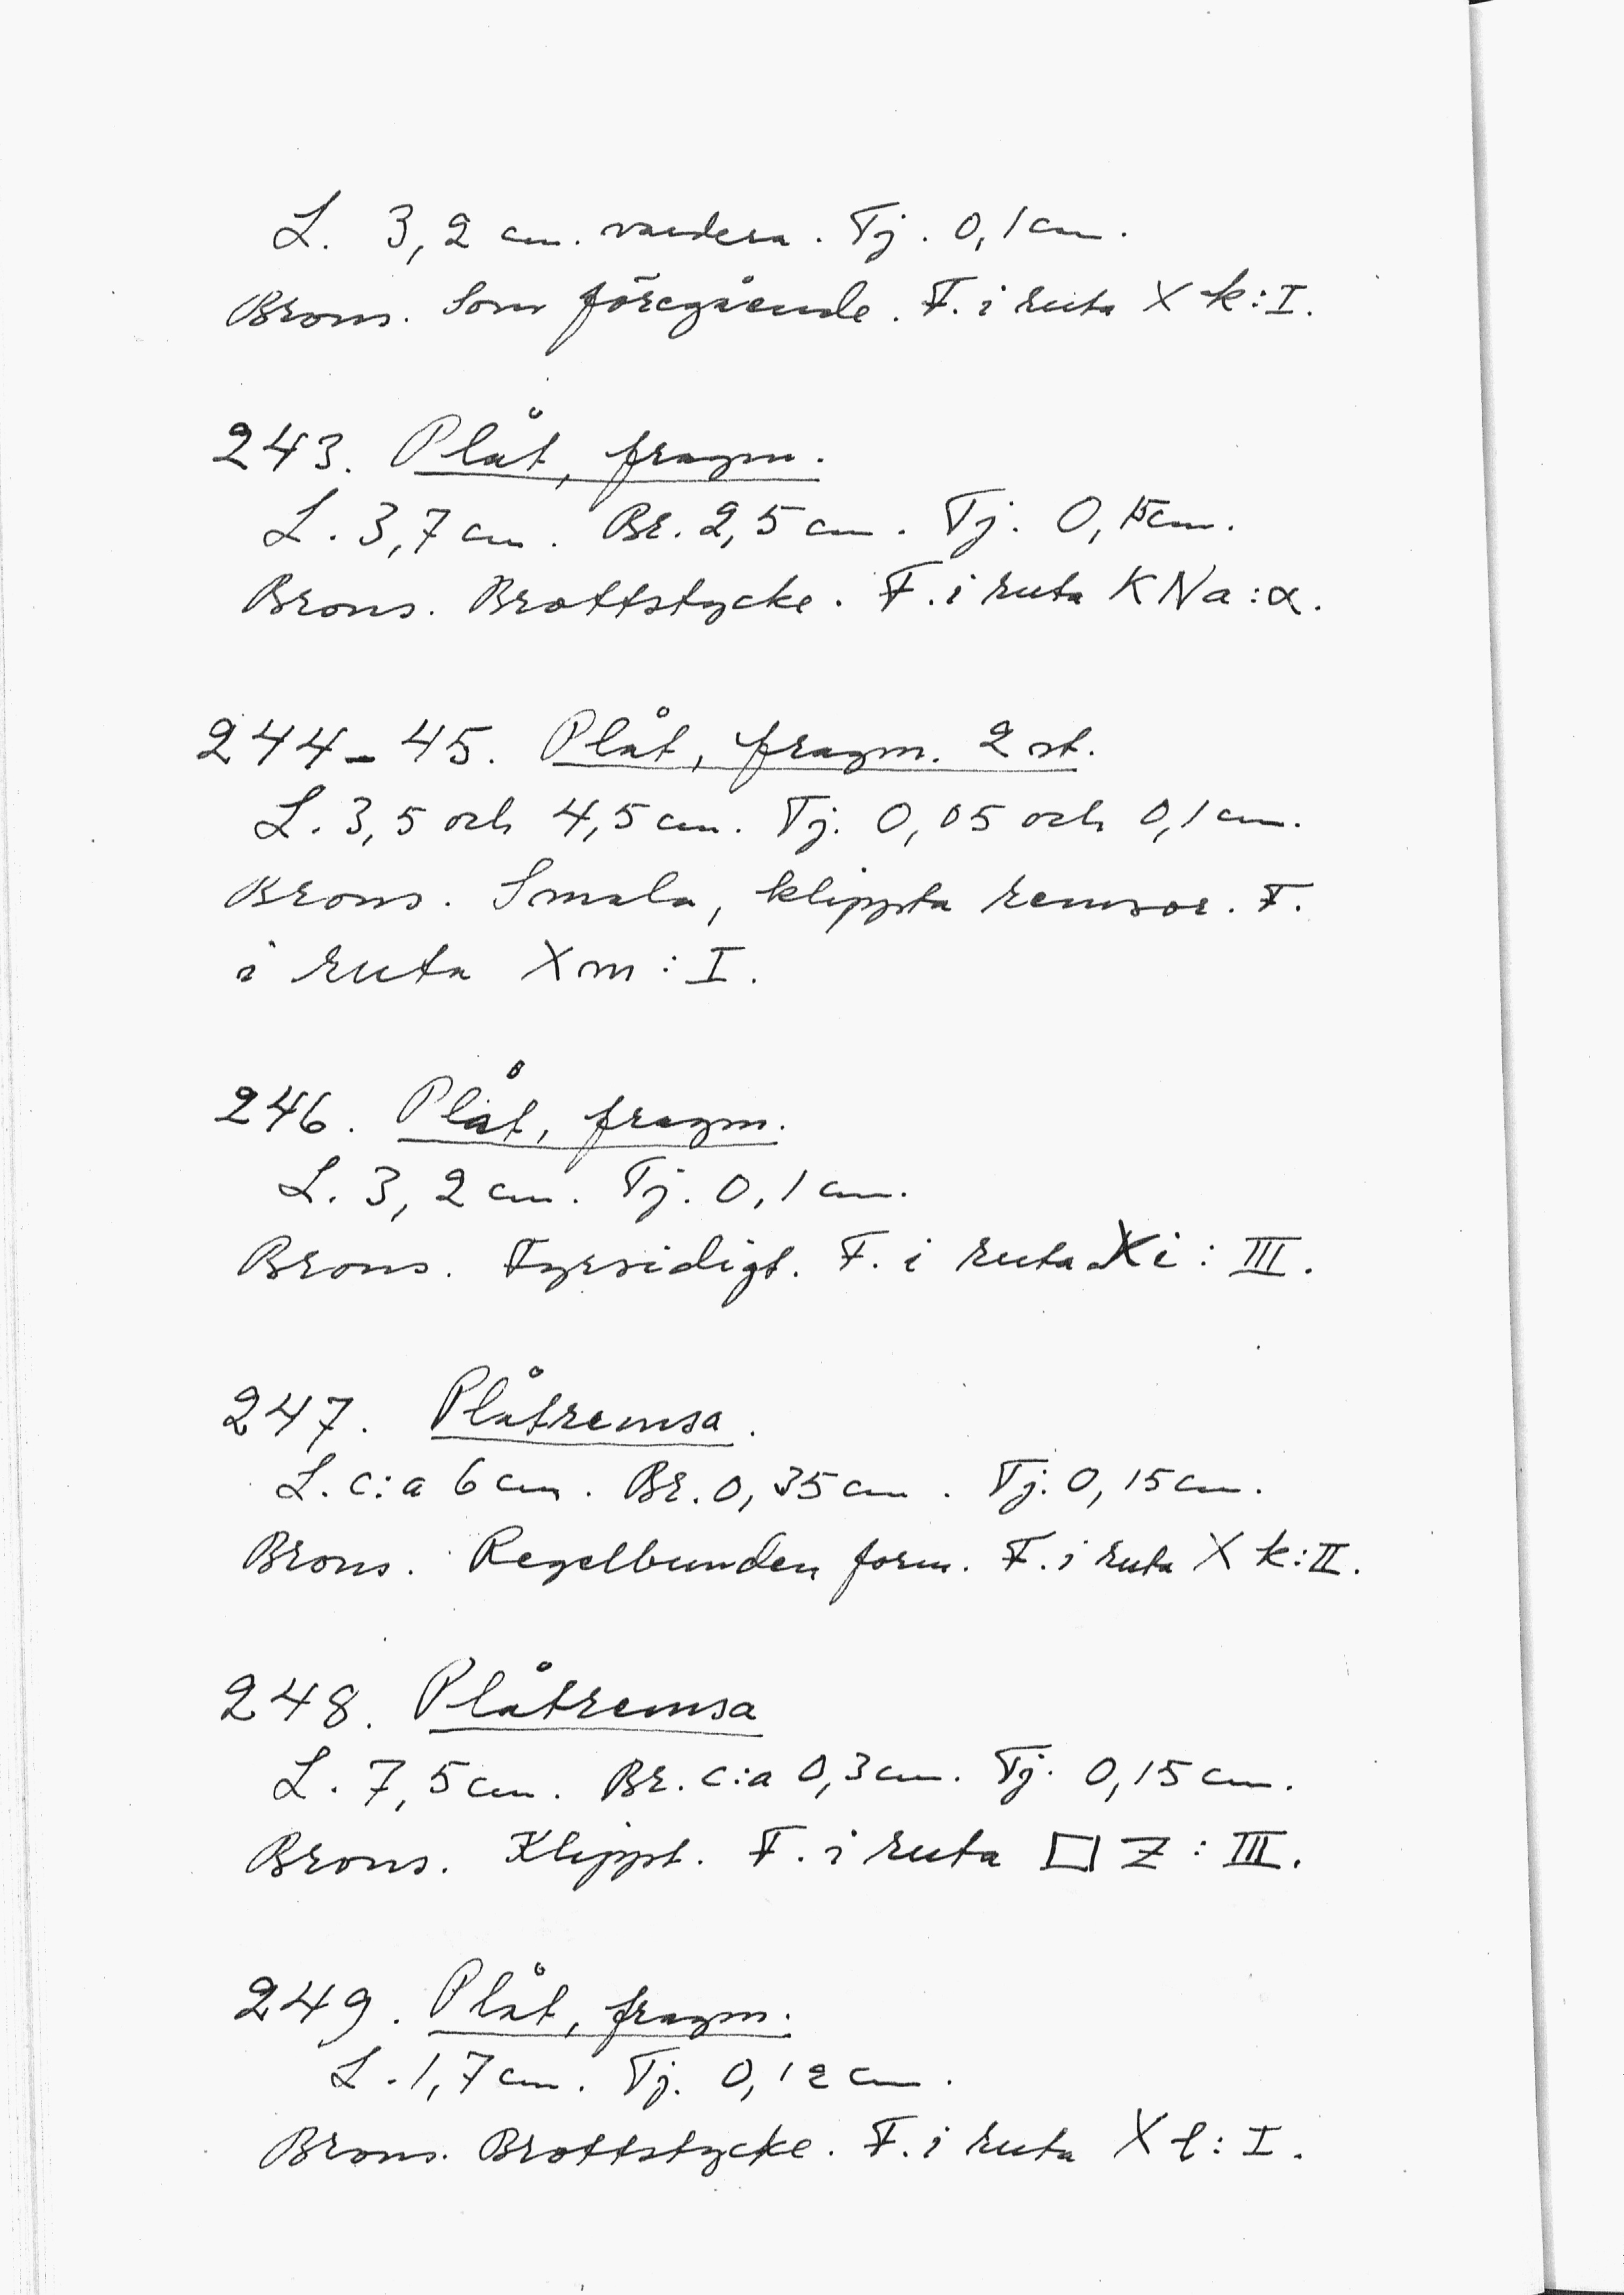 L. 3,2 cm. vardera. Tj. 0,1 cm.
Brons. Som föregående. F. i ruta X k: I.
243. Plåt, fragm.
L. 3,7 cm. Br. 2,5 cm. Tj. 0,15 cm.
Brons. Brottstycke. F. i ruta KNa: α.
244-45. Plåt, fragm. 2 st.
L. 3,5 och 4,5 cm. Tj. 0,05 och 0,1 cm.
Brons. Smala, klippta remsor. F.
i ruta Xm: I.
246. Plåt, fragm.
L. 3,2 cm. Tj. 0,1 cm.
Brons. Fyrsidigt. F. i ruta Xi: III.
247. Plåtremsa.
L. c:a 6 cm. Br. 0,35 cm. Tj. 0,15 cm.
Brons. Regelbunden form. F. i ruta X k: II.
248. Plåtremsa
L. 7,5 cm. Br. c:a 0,3 cm. Tj. 0,15 cm.
Brons. Klippt. F. i ruta □ Z: III.
249. Plåt, fragm.
L. 1,7 cm. Tj. 0,12 cm.
Brons. Brottstycke. F. i ruta X l: I.